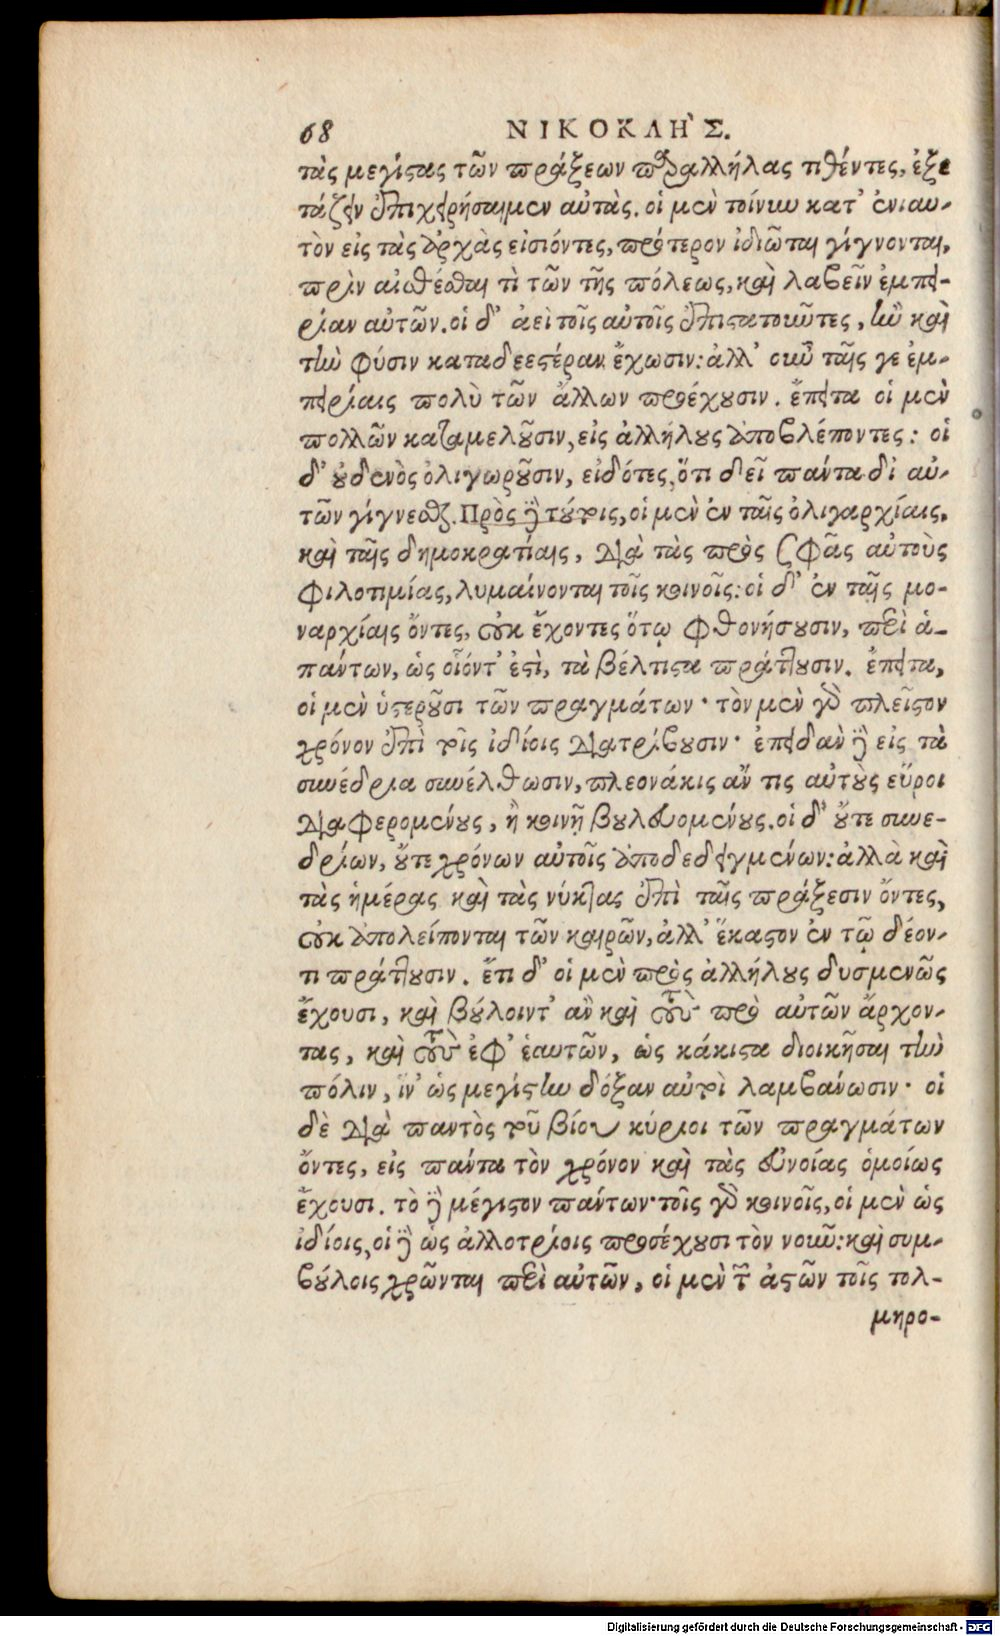 68 ΝΙΚΟΚΛΗ῀Σ.
τὰς μεγίϛας τῶν πράξεων παραλλήλας τιθέντες, ἐξε
τάζειν ἐπιχειρήσαιμεν αὐτὰς. οἱ μὲν τοίνυν κατ' ἐνιαυ-
τὸν εἰς τὰς ἀρχὰς εἰσιόντες, πρότερον ἰδιῶται γίγνονται,
πρὶν αἰσθέσθαι τὶ τῶν τῆς πόλεως, καὶ λαβεῖν ἐμπει-
ρίαν αὐτῶν. οἱ δ' ἀεὶ τοῖς αὐτοῖς ἐπιϛατοῦντες, ἢν καὶ
τὴν φύσιν καταδεεϛέραν ἔχωσιν: ἀλλ' οὖν ταῖς γε ἐμ-
πειρίαις πολὺ τῶν ἄλλων προέχουσιν. ἔπειτα οἱ μὲν
πολλῶν καταμελοῦσιν, εἰς ἀλλήλους ἀποβλέποντες: οἱ
δ' οὐδενὸς ὀλιγωροῦσιν, εἰδότες, ὅτι δεῖ πάντα δι αὐ-
τῶν γίγνεσθαι. Πρὸς δὲ τούτοις, οἱ μὲν ἐν ταῖς ὀλιγαρχίαις,
καὶ ταῖς δημοκρατίαις, διὰ τὰς πρὸς σφᾶς αὐτοὺς
φιλοτιμίας, λυμαίνονται τοῖς κοινοῖς: οἱ δ' ἐν ταῖς μο-
ναρχίαις ὄντες, οὐκ ἔχοντες ὅτῳ φθονήσουσιν, περὶ ἁ-
πάντων, ὡς οἷόντ' ἐϛὶ, τὰ βέλτιϛα πράττουσιν. ἔπειτα,
οἱ μὲν ὑϛεροῦσι τῶν πραγμάτων· τὸν μὲν γὰρ πλεῖϛον
χρόνον ἐπὶ τοῖς ἰδίοις διατρίβουσιν· ἐπειδὰν δὲ εἰς τὰ
συνέδρια συνέλθωσιν, πλεονάκις ἄν τις αὐτοὺς εὕροι
διαφερομένους, ἢ κοινῇ βουλευομένους. οἱ δ' οὔτε συνε-
δρίων, οὔτε χρόνων αὐτοῖς ἀποδεδειγμένων: ἀλλὰ καὶ
τὰς ἡμέρας καὶ τὰς νύκτας ἐπὶ ταῖς πράξεσιν ὄντες,
οὐκ ἀπολείπονται τῶν καιρῶν, ἀλλ' ἕκαϛον ἐν τῷ δέον-
τι πράττουσιν. ἔτι δ' οἱ μὲν πρὸς ἀλλήλους δυσμενῶς
ἔχουσι, καὶ βούλοιντ' ἂν καὶ τοὺς πρὸ αὐτῶν ἄρχον-
τας, καὶ τοὺς ἐφ' ἑαυτῶν, ὡς κάκιϛα διοικῆσαι τὴν
πόλιν, ἵν' ὡς μεγίϛην δόξαν αὐτοὶ λαμβάνωσιν· οἱ
δὲ διὰ παντὸς τοῦ βίου κύριοι τῶν πραγμάτων
ὄντες, εἰς πάντα τὸν χρόνον καὶ τὰς εὐνοίας ὁμοίως
ἔχουσι. τὸ δὲ μέγιϛον πάντων· τοῖς γὰρ κοινοῖς, οἱ μὲν ὡς
ἰδίοις, οἱ δὲ ὡς ἀλλοτρίοις προσέχουσι τὸν νοῦν: καὶ συμ-
βούλοις χρῶνται περὶ αὐτῶν, οἱ μὲν τῶν ἀϛῶν τοῖς τολ-
μηρο-
Digitalisierung gefördert durch die Deutsche Forschungsgemeinschaft - DFG